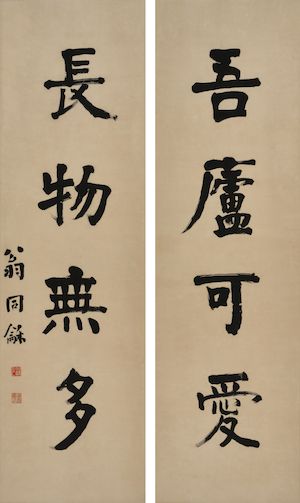 吾廬可愛
長物無多
翁同龢